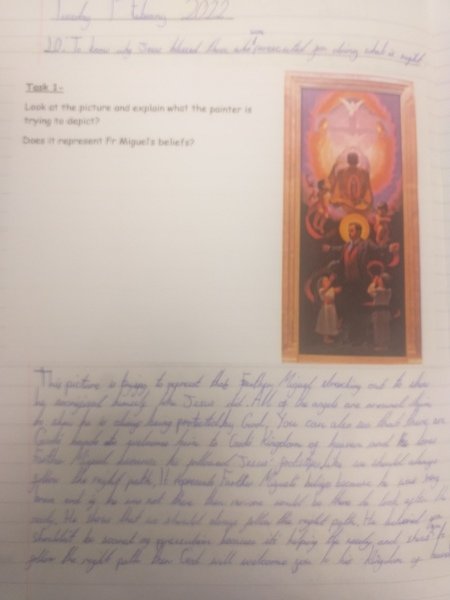 Tuesday 1st February 2022
L.O. To know why Jesus blessed those who were persecuted for doing what is right
Task 1-
Look at the picture and explain what the painter is
trying to depict?
Does it represent Fr Miguel's beliefs?
This picture is trying to represent that Father Miguel out to show
he sacrificed himself like Jesus did. All of the angels are around
to show he is being protected by God. You can also see that there are
God's hands to welcome him to God's Kingdom of heaven and the
Father Miguel because he followed Jesus' footsteps like we should always
follow the right path. It represents Father Miguel's beliefs because he was very
brave and if he was not there then no-one would be there to look after the
needy. He shows that we should always follow the right path. He believed you
shouldn't be scared of persecution because it's helping the needy and
follow the right path then God will welcome you to his Kingdom of heaven